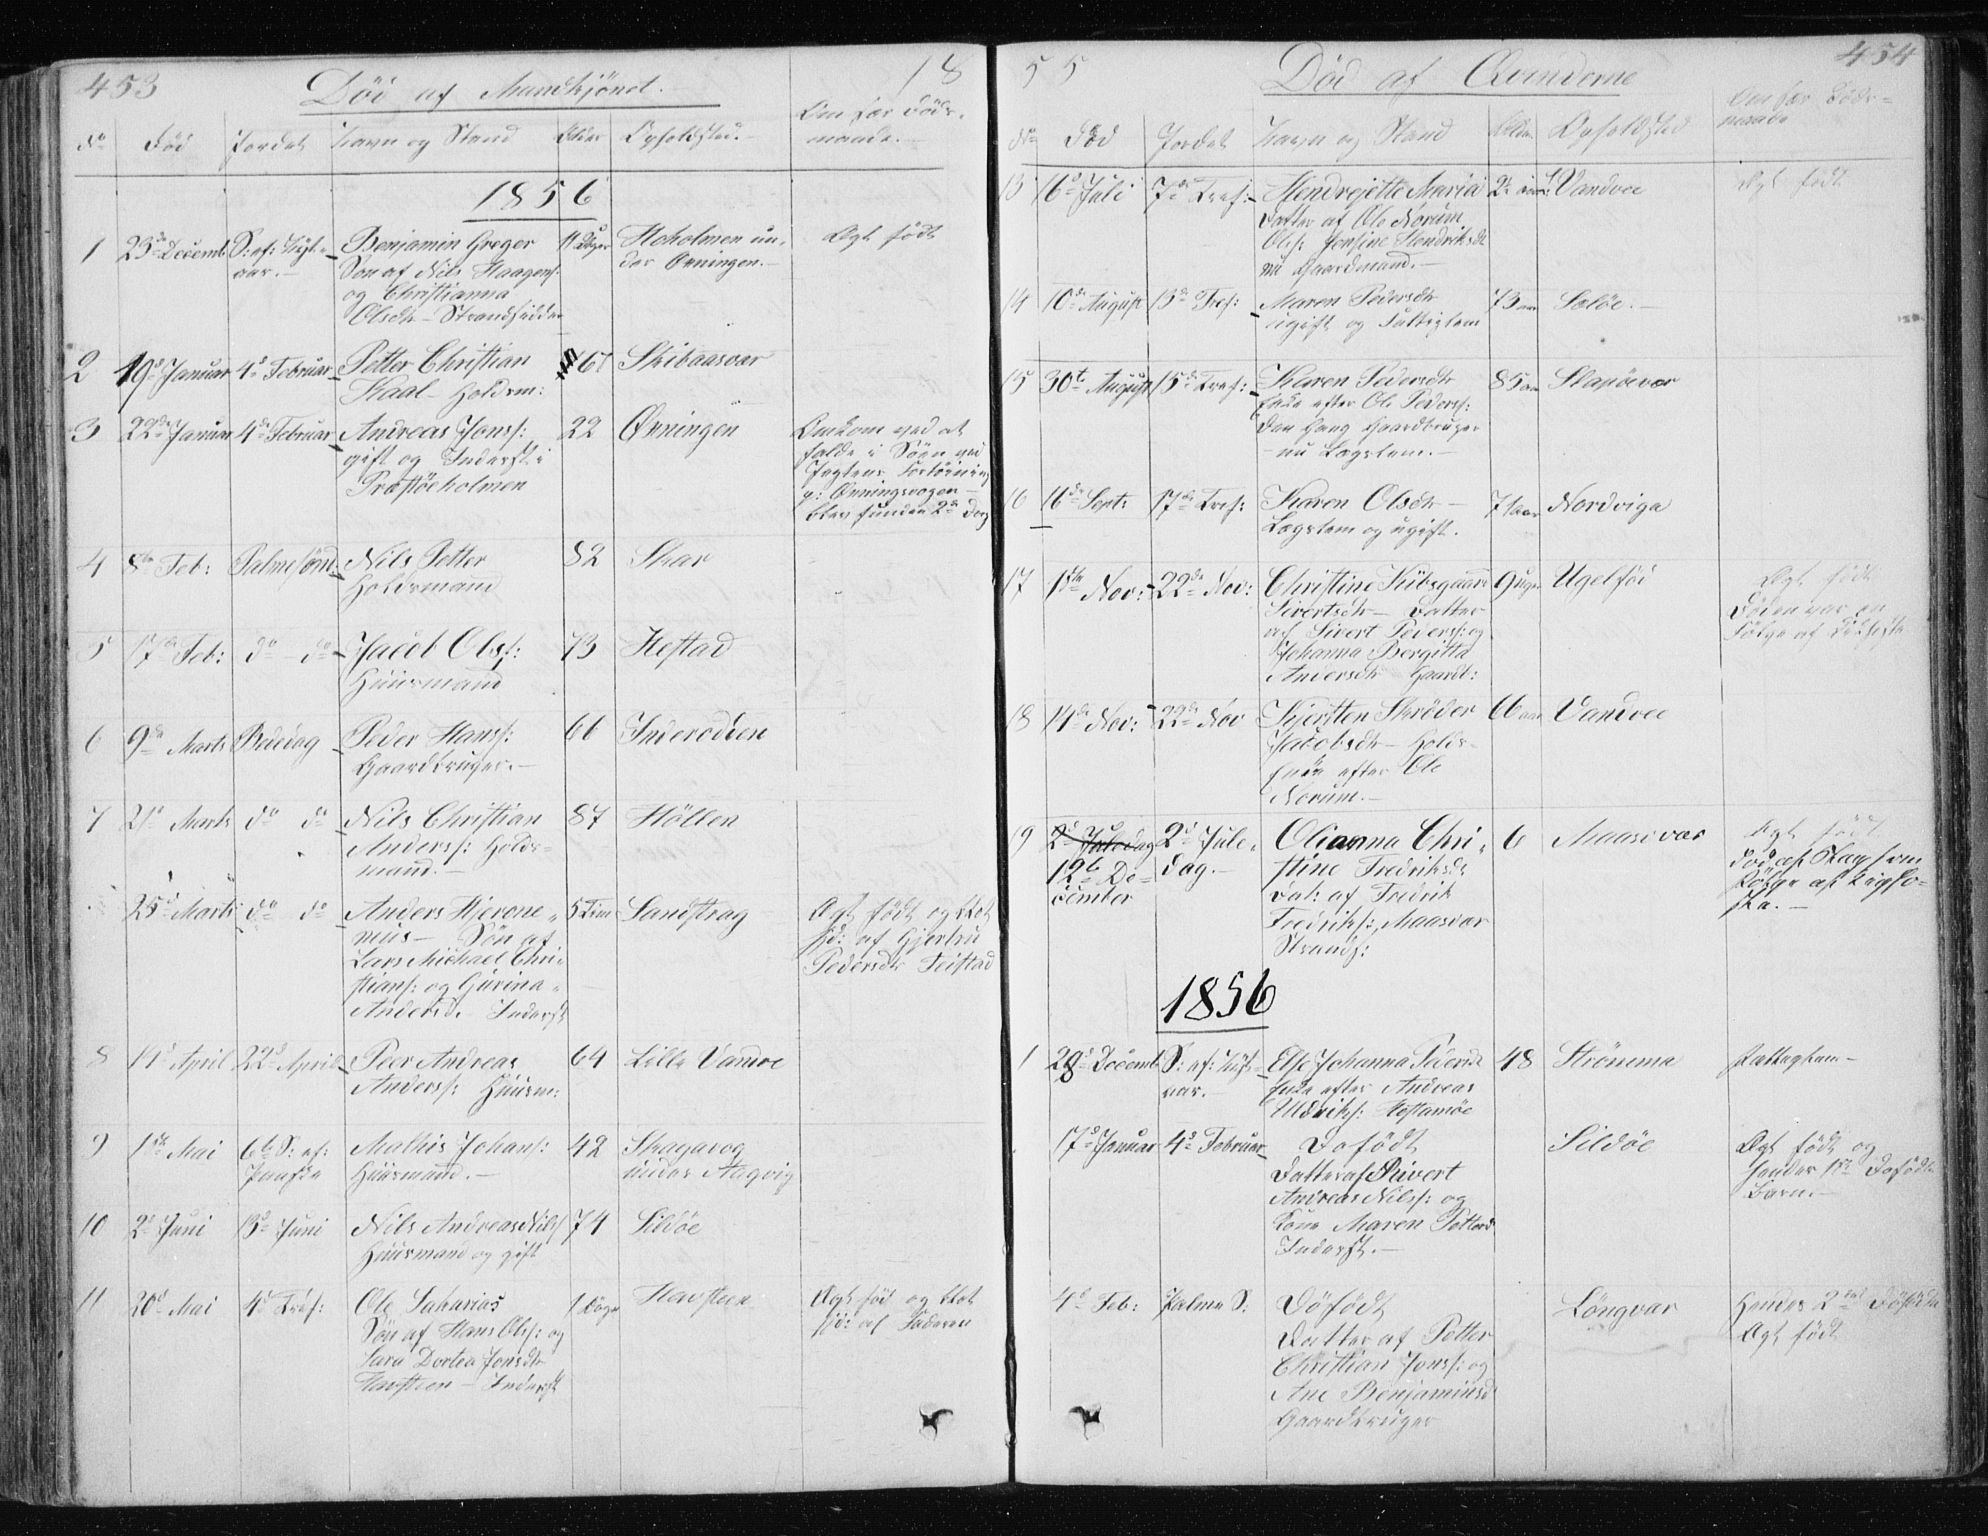 453
Död af Mandkjönet.
18
No Död Jordet Navn og Stand Alder Opholdsted. Om Før Döds-
maade.
1856
1 23de Decemb S: ef: Nyt-
aar. Benjamin Greger
Søn af Nils Haagens:
og Christianna
Olsdr - Strandsidder 11 Dage Hoholmen un-
der Qvningen. Ægt född
2 19d Januar 4d Februar Petter Christian
Kaal - Holdsm: 67 Skibaasvær
3 22de Januar 4de Februar Andreas Jonss:
gift og Inderst i
Præstöeholmen 22 Qvningen Omkom ved at
falde i Søen ved
Jægtens Fortöining
p: Qvningsvogen -
blev funden 2d Dag
4 8de Feb: Palmesönd: Nils Petter
Holdsmand 82 Skar
5 17de Feb: do do Jacob Olss:
Huusmand 73 Hestad
6 9de Marts Bededag Peder Hanss:
Gaardbruger. - 66 Inderodden
7 21de Marts do do Nils Christian
Anderss: Holds-
mand. - 87 Höllen
25d Marts do do Anders Hjerone-
mus - Søn af
Lars Michael Chri-
stians: og Gurina
Andersd. Inderst 5 Tim Sandstrag Ægt född og blot
hjd: af Gjertru
Pedersdr Feistad
8 14d April 22d April Peer Andreas
Anderss: Huusm: 64 Lille Vandve
9 1ste Mai 6te S: ef:
Paaske Mathis Johans:
Huusmand. - 42 Skagavog
under Aagvig
10 2d Juni 13d Juni Nils Andreas Nilss
Huusmand og gift 74 Sildöe
11 20d Mai 4d Tref: Ole Sakarias
Søn af Hans Olss: og
Sara Dortea Jonsdr
Havsteen - Inderst 1 Døgn Havsteen Ægt född og blot
hjd: af Faderen
55
Död af Qvinderne
454
No Död Jordet Navn og Stand Alder Opholdsted Om Før Döds-
maade
13 16d Juli 7de Tref: Hendrejette Maria
Datter af Ole Norum
Olss: Jensine Hendriksdr
nu Gaardmand. - 2 aar Vandvee Ægt född
14 10de August 13de Tref: Maren Pedersdr
ugift og Fattiglem 73 aar Soløe. -
15 30te August 15de Tref: Karen Pedersdr
Enke efter Ole Peders:
Dan Haug Gaardbruger
nu Lægslem. - 85 aar Slapöevær
16 16de Sept: 17de Tref: Karen Olsdr -
Lægslem og ugift. 71 aar Nordviga
17 1ste Nov: 22de Nov: Christine Kibsgaard
Sivertsdr - Datter
af Sivert Pederss: og
Johanna Bergitta
Andersdr Gaardb: 9 uger Ugelföi Ægt född
Döden var en
Fölge af Kighoste
18 14de Nov: 22de Nov Kjersten Skröder
Jacobsdr - Holds-
Enke efter Ole
Norum. - 66 aar Vandvee
19 2d Juledag
12te De-
cember 2d Jule-
dag. - Olianna Chri-
stine Fredriksdr
Dat: af Fredrik
Fredriks: Maasvær
Strands: 6 Maasvær Ægt född
död af Slag som
Følge af Kigho-
ste. -
1856
1 28d Decemb S: ef: Nyt-
aar. - Else Johanna Pedersdr
Enke efter Andreas
Uldriks: Hestamöe 48 Strömma Fattiglem -
17d Januar 4d Februar Dofödt
Datter af Sivert
Andreas Nilss: og
Kone Maren Petters
Inderst. - Sildöe Ægt född og
hendes 1ste Dofödte
Barn. -
4d Feb: Palme S: Döfödt
Datter af Petter
Christian Jonss: og
Ane Benjaminsd
Gaardbruger Löngvær Hendes 2det Döfödte
Ægt född